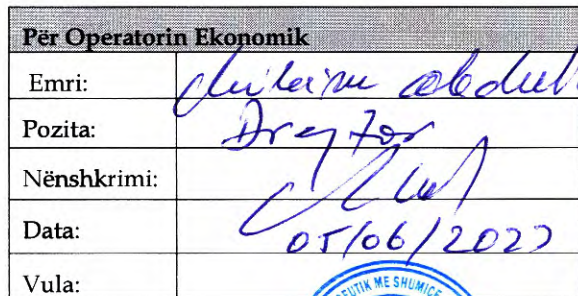 Për Operatorin Ekonomik
Emri:
Pozita: Drejtor
Nënshkrimi:
Data: 05/06/2023
Vula:
EUTIK ME SHUMICË